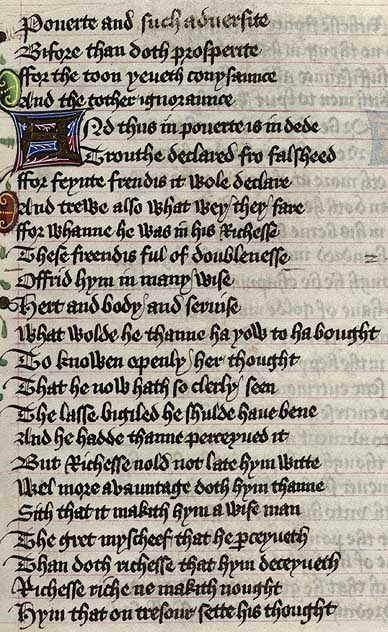 Pouerte and such aduersite
Bifore than doth prosperite
ffor the toon yeueth conysaunce
And the tother ignoraunce
And thus in pouerte is in dede
Trouthe declared fro falsheed
ffor feynte frendis it wole declare
And trewe also what wey they fare
ffor whanne he was in his Richesse
These freendis ful of doublenesse
Offrid hym in many wise
Hert and body and seruise
What wolde he thanne ha yow to ha bought
To knowen openly her thought
That he now hath so clerly seen
The lasse bigiled he shulde haue bene
And he hadde thanne perceyued it
But Richesse nold not late hym witte
Wel more auauntage doth hym thanne
Sith that it makith hym a wise man
The gret myscheef that he perceyueth
Than doth richesse that hym deceyueth
Richesse riche ne makith nought
Hym that on tresour sette his thought